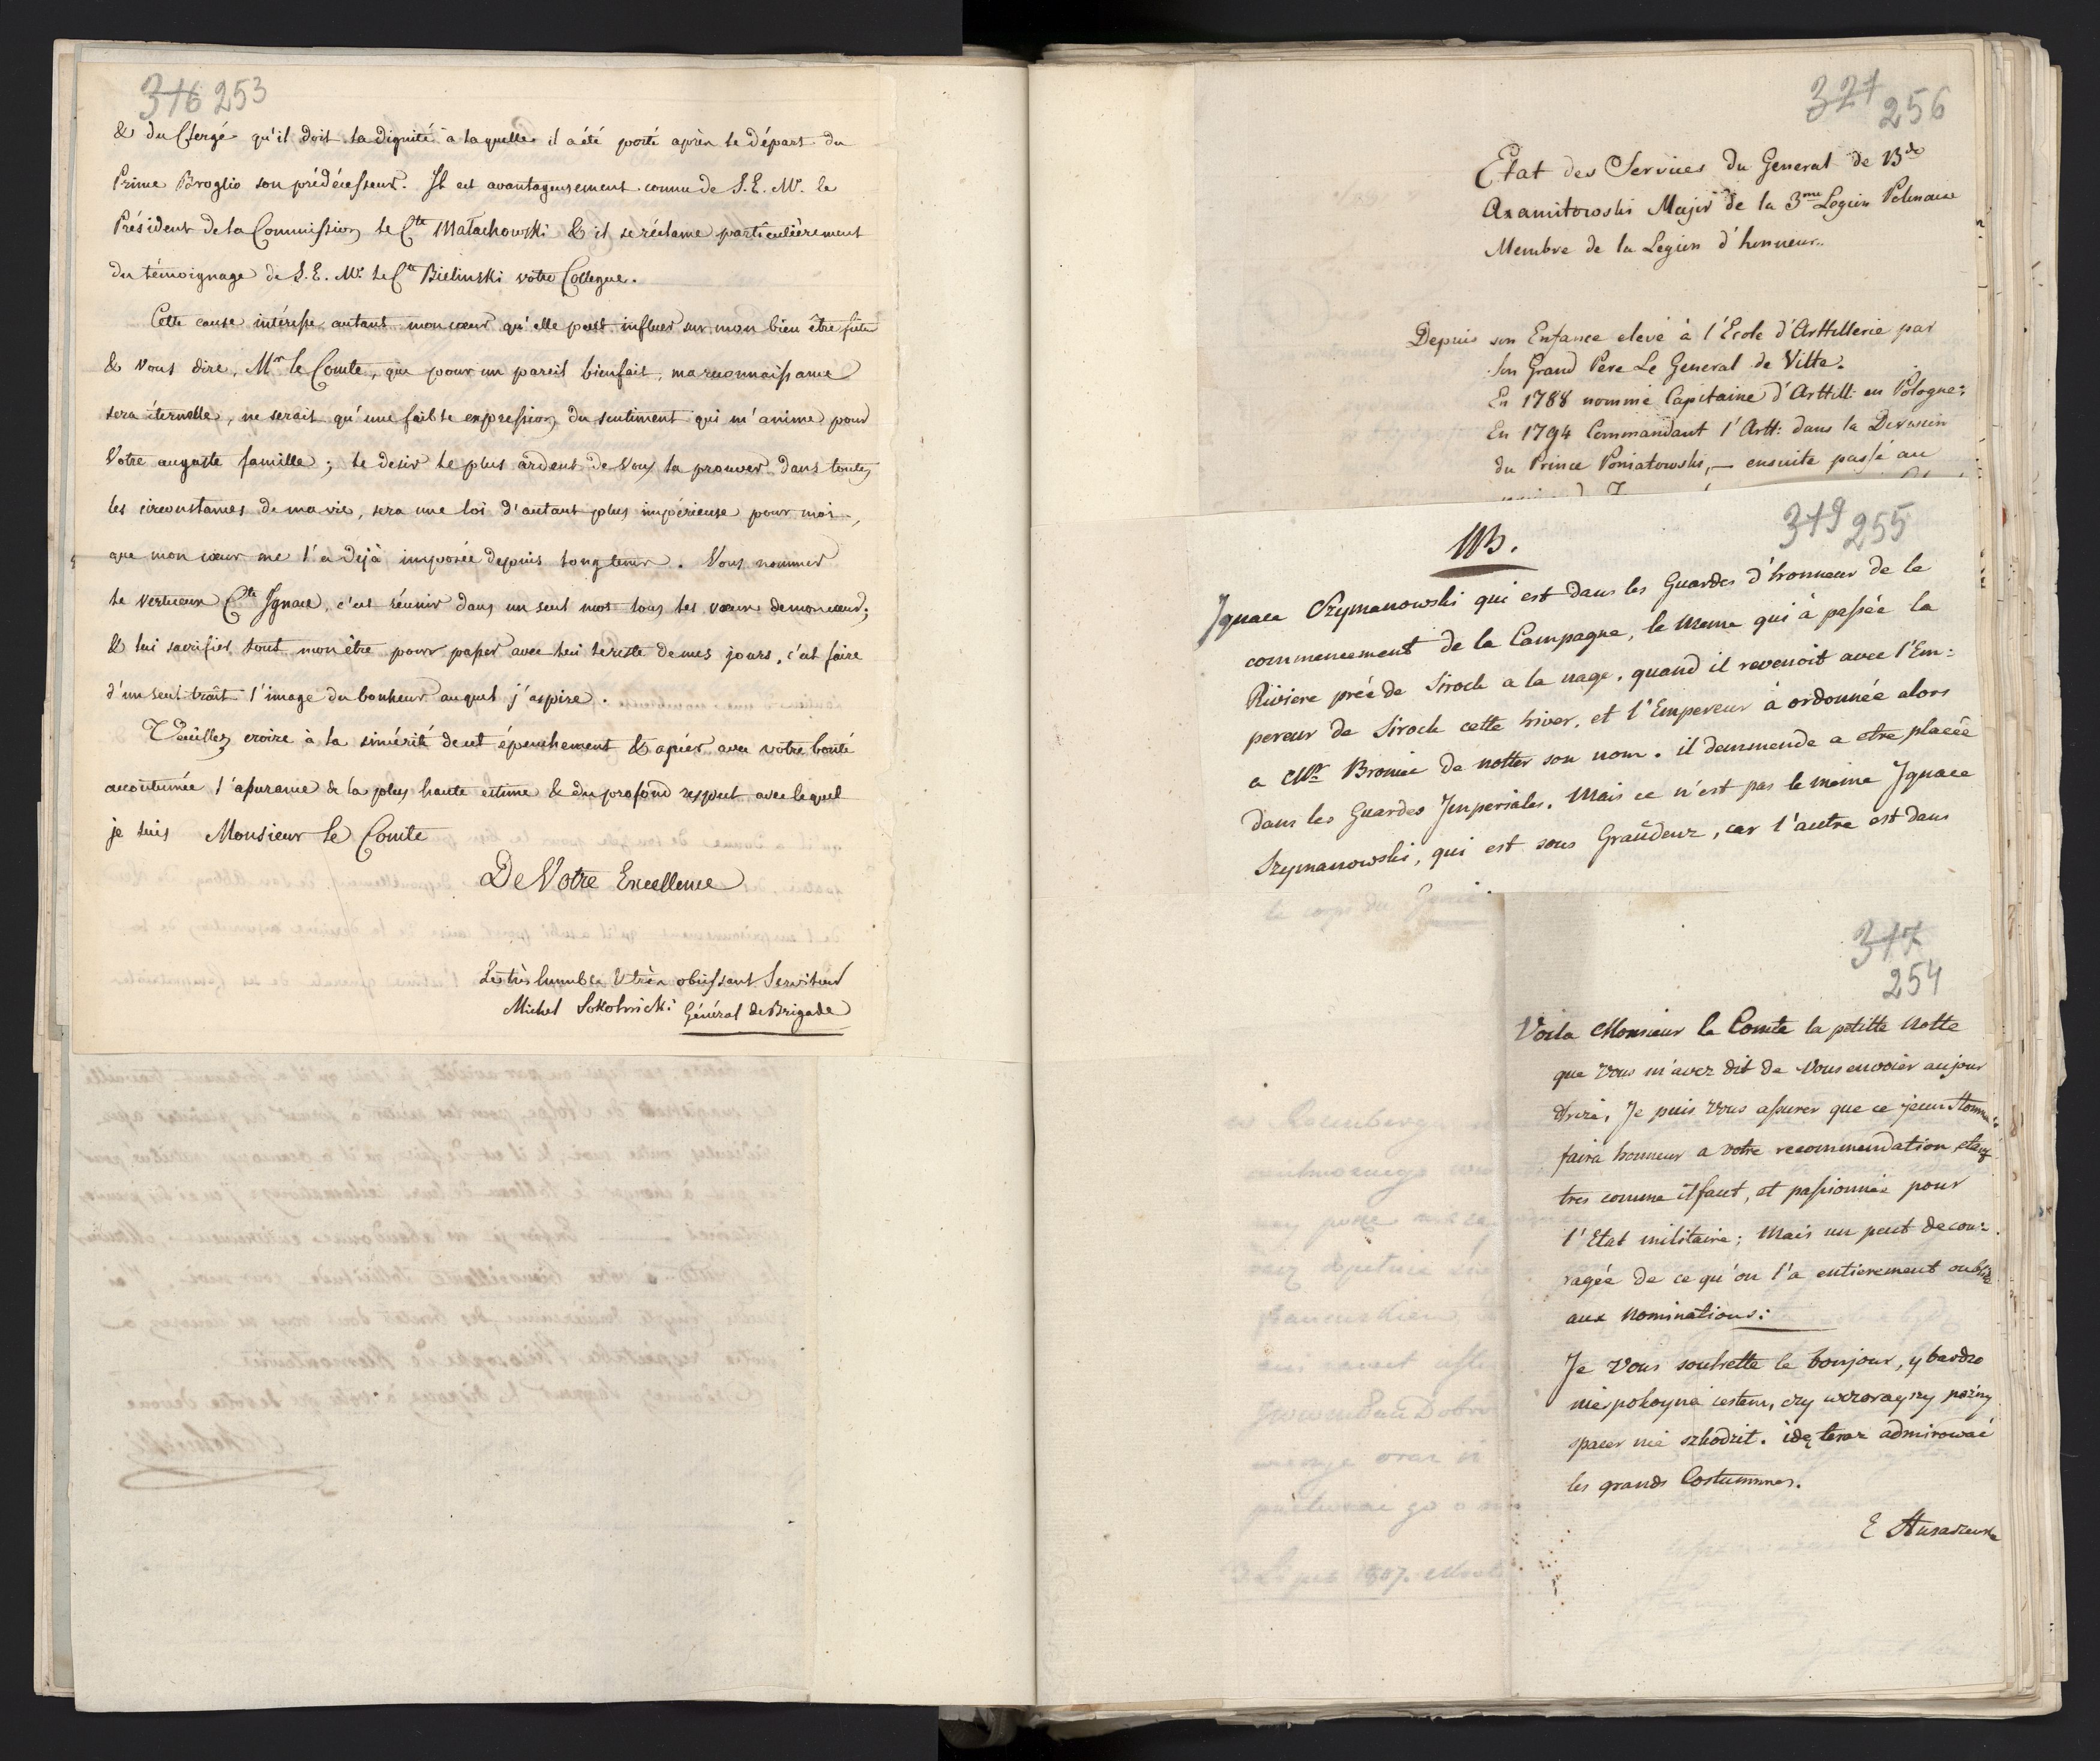 316 253
& du Clergé qu'il doit la dignité a laquelle il a été porté après le départ du
Prince Broglio son prédécesseur. Il est avantageusement connu de S. E. Mr. le
Président de la Commission le Cte Małachowski & il se réclame particulièrement
du témoignage de S. E. Mr. le Cte Bielinski votre Collegue.
Cette cause intéresse autant mon cœur qu'elle peut influer sur mon bien être futur
& vous dire, Mr le Comte, que pour un pareil bienfait, ma reconnaissance
sera éternelle, ne serait qu'une faible expression du sentiment qui m'anime pour
Votre auguste famille; le desir le plus ardent de vous la prouver dans toutes
les circonstances de ma vie, sera une loi d'autant plus impérieuse pour moi,
que mon cœur me l'a dejà imposée depuis longtems. Vous nommer
le vertueux Cte Ignace, c'est réunir dans un seul mot tous les vœux de mon cœur;
& lui sacrifier tout mon être pour passer avec lui le reste de mes jours, c'est faire
d'un seul trait l'image du bonheur auquel j'aspire.
Veuillez croire à la sincérité de cet épenchement & agréer avec votre bonté
accoutumée l'assurance de la plus haute estime & du profond respect avec lequel
je suis Monsieur le Comte
De Votre Excellence
Le très humble & très obéissant Serviteur
Michel Sokolnicki Général de Brigade
321 256
Etat des Services du General de Bde
Axamitowski Major de la 3me Legion Polonaise
Membre de la Legion d'honneur.
Depuis son Enfance elevé à l'Ecole d'Arttillerie par
son Grand Pere Le General de Vitte.
En 1788 nommé Capitaine d'Arttill: en Pologne;
En 1794 Commandant l'Artt: dans la Division
du Prince Poniatowski, — ensuite passé au
319 255
NB.
Ignace Szymanowski qui est dans les Guardes d'honneur de le
commencement de la Campagne, le meme qui à passée la
Riviere préé de Siroch a la nage, quand il revenoit avec l'Em:
pereur de Siroch cette hiver, et l'Empereur à ordonnée alors
a Mr Bronice de notter son nom. il demmende a etre placéé
dans les Guardes Imperiales. Mais ce n'est pas le meme Ignace
Szymanowski, qui est sous Graudenz, car l'autre est dans
le corps du Genie.
317
254
Voila Monsieur le Comte la petitte Notte
que vous m'avez dit de vous envoier aujour
dhui, Je puis vous assurer que ce jeun homme
faira honneur a votre recommendation, etant
tres comme il faut, et passionnée pour
l'Etat militaire; Mais un peut decou:
ragée de ce qu'on l'a entierement oublié
aux Nominations:
Je vous souhette le bonjour, y bardzo
niespokoyna iestem, czy wczorayszy pozny
spacer nie szkodził. idę teraz admirować
les grands Costummes.
E